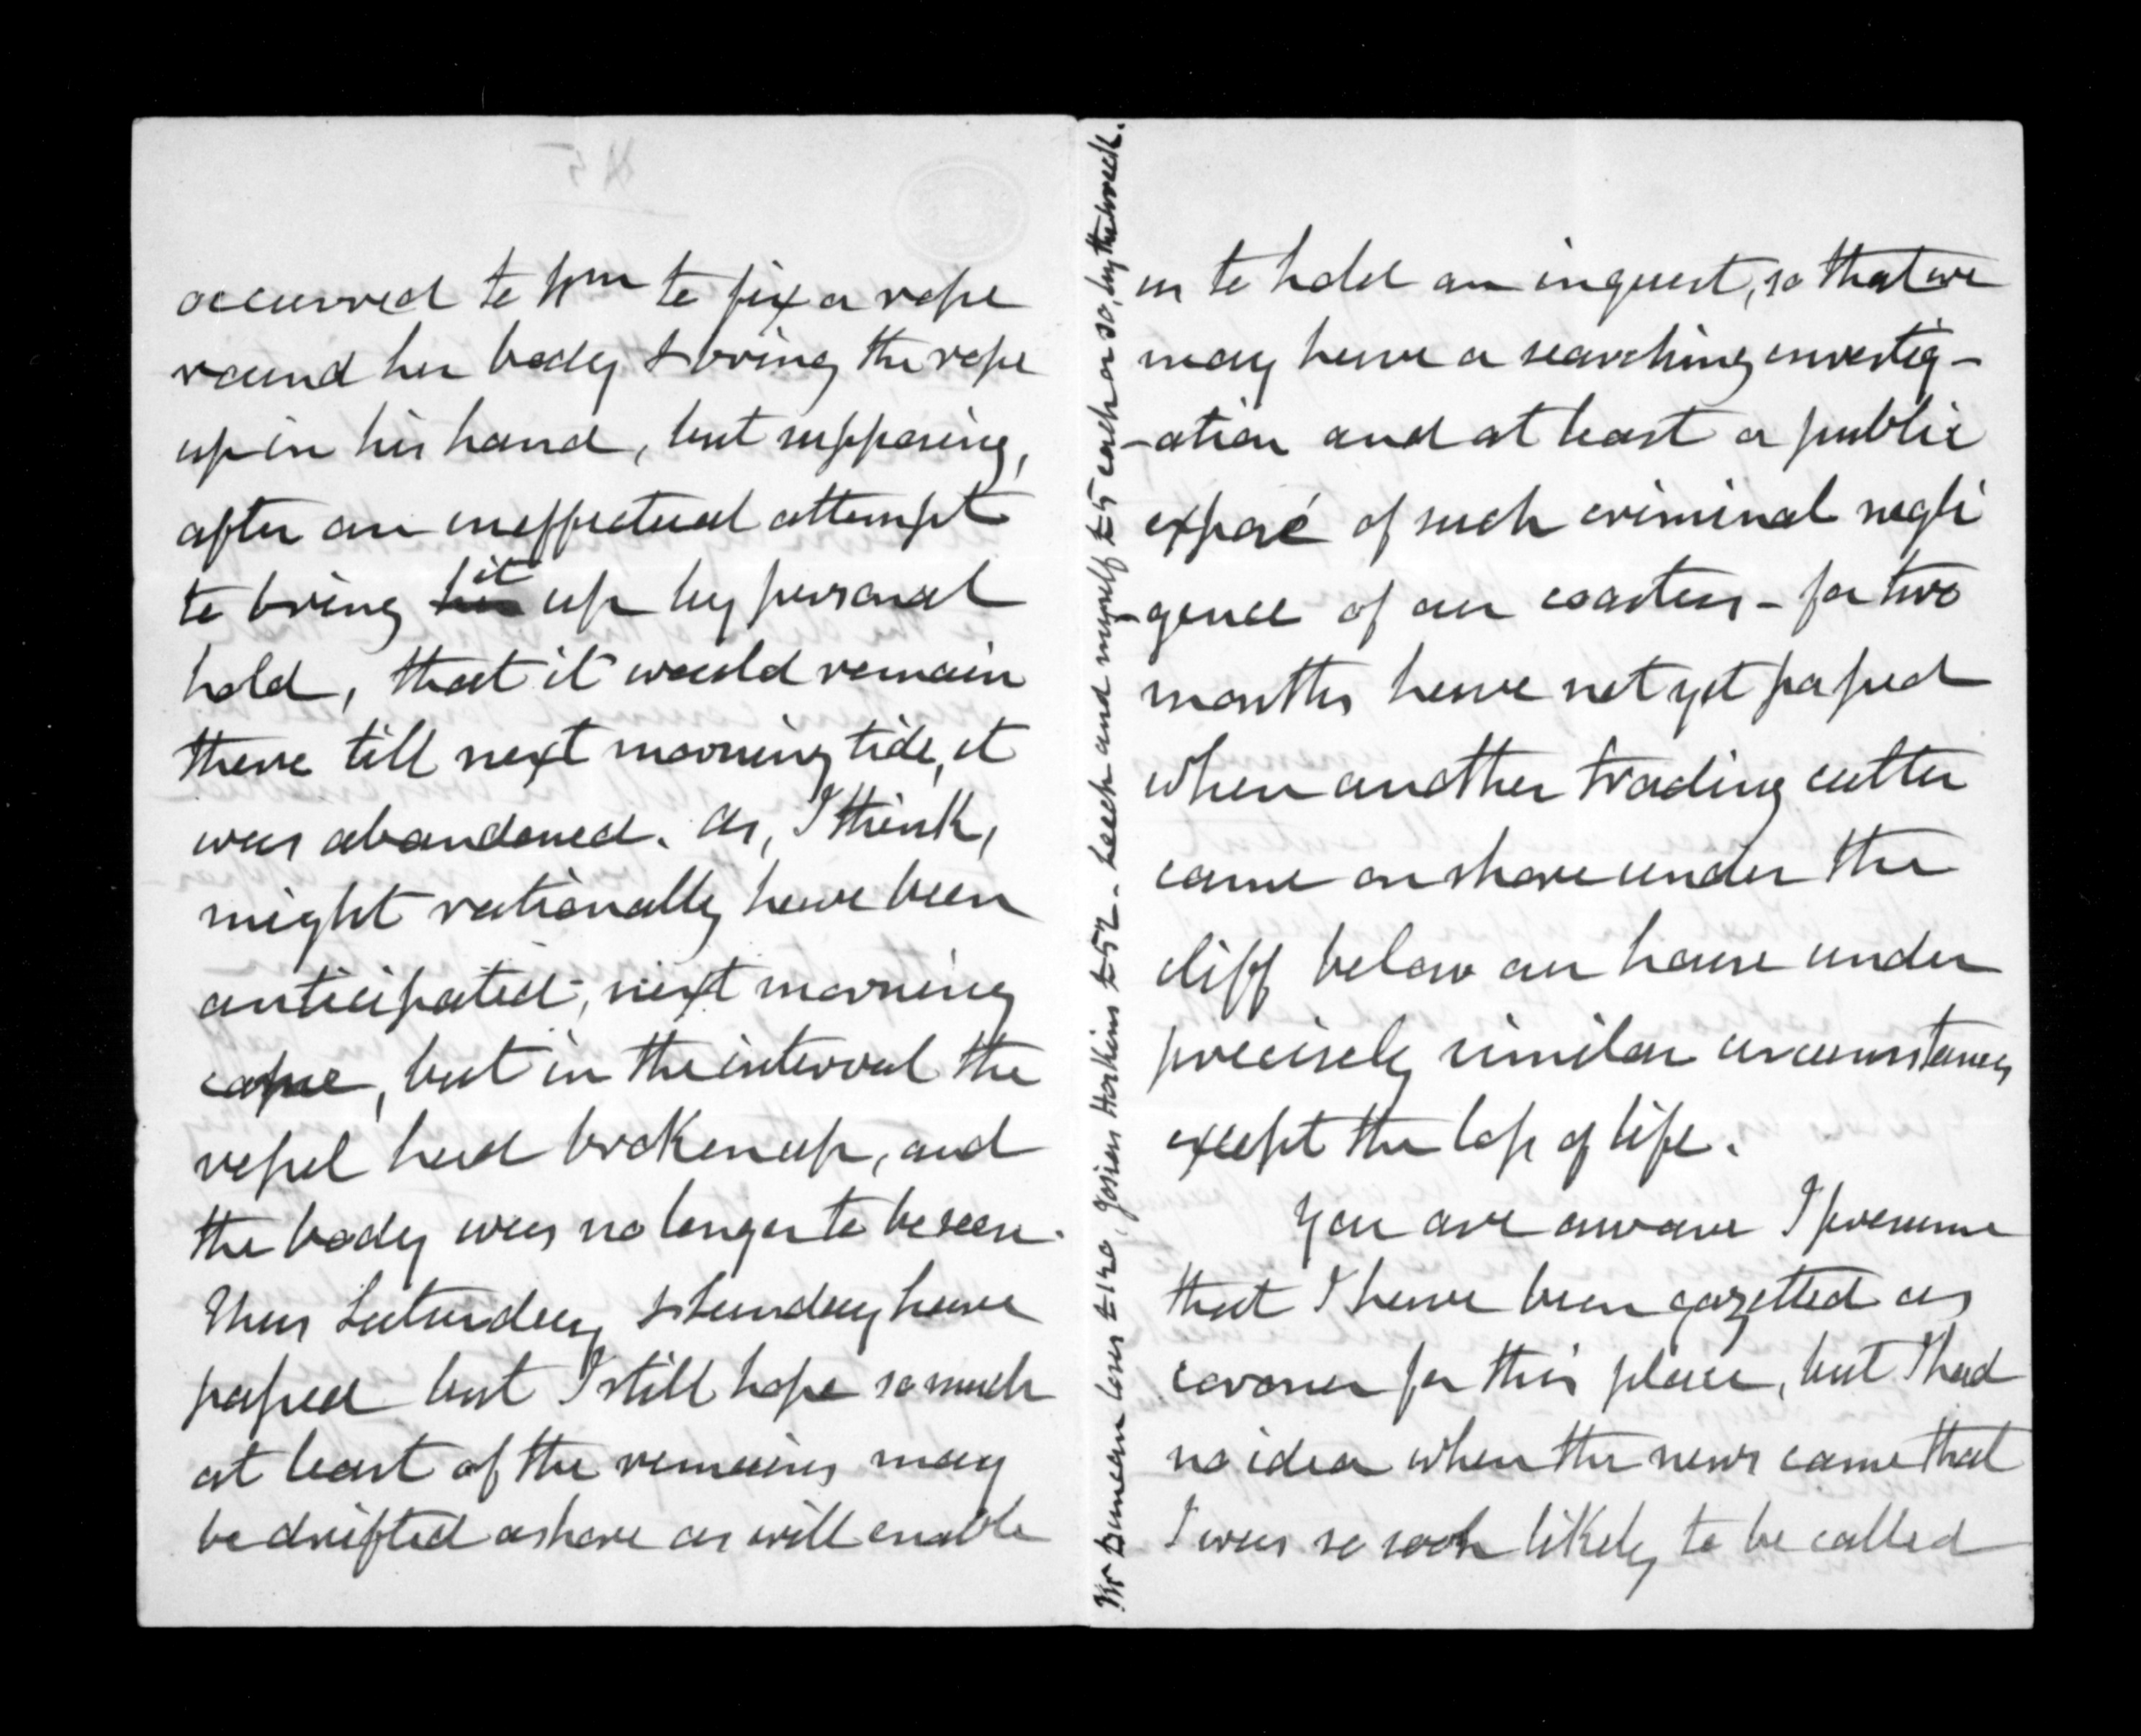 occurred to Wm to fix a rope
round her body & bring the rope
up in his hand, but supposing,
after an ineffectual attempt
to bring her it up by personal
hold, that it would remain
there till next morning tide, it
was abandoned. As, I think,
might rationally have been
anticipated, next morning
came, but in the interval the
vessel had broken up, and
the body was no longer to be seen.
Thus Saturday & Sunday have
passed but I still hope so much
at least of the remains may
be drifted ashore as will enable
Mr Duncan loses £120, Josiah Hoskins £52 - Leech and myself £5 each or so, by the wreck.
us to hold an inquest, so that we
may have a searching investig-
-ation and at least a public
exposé of such criminal negli
-gence of our coasters - for two
months have not yet passed
when another trading cutter
came on shore under the
cliff below our house under
precisely similar circumstances
except the loss of life.
You are aware I presume
that I have been gazetted as
coroner for this place, but I had
no idea when the news came that
I was so soon likely to be called